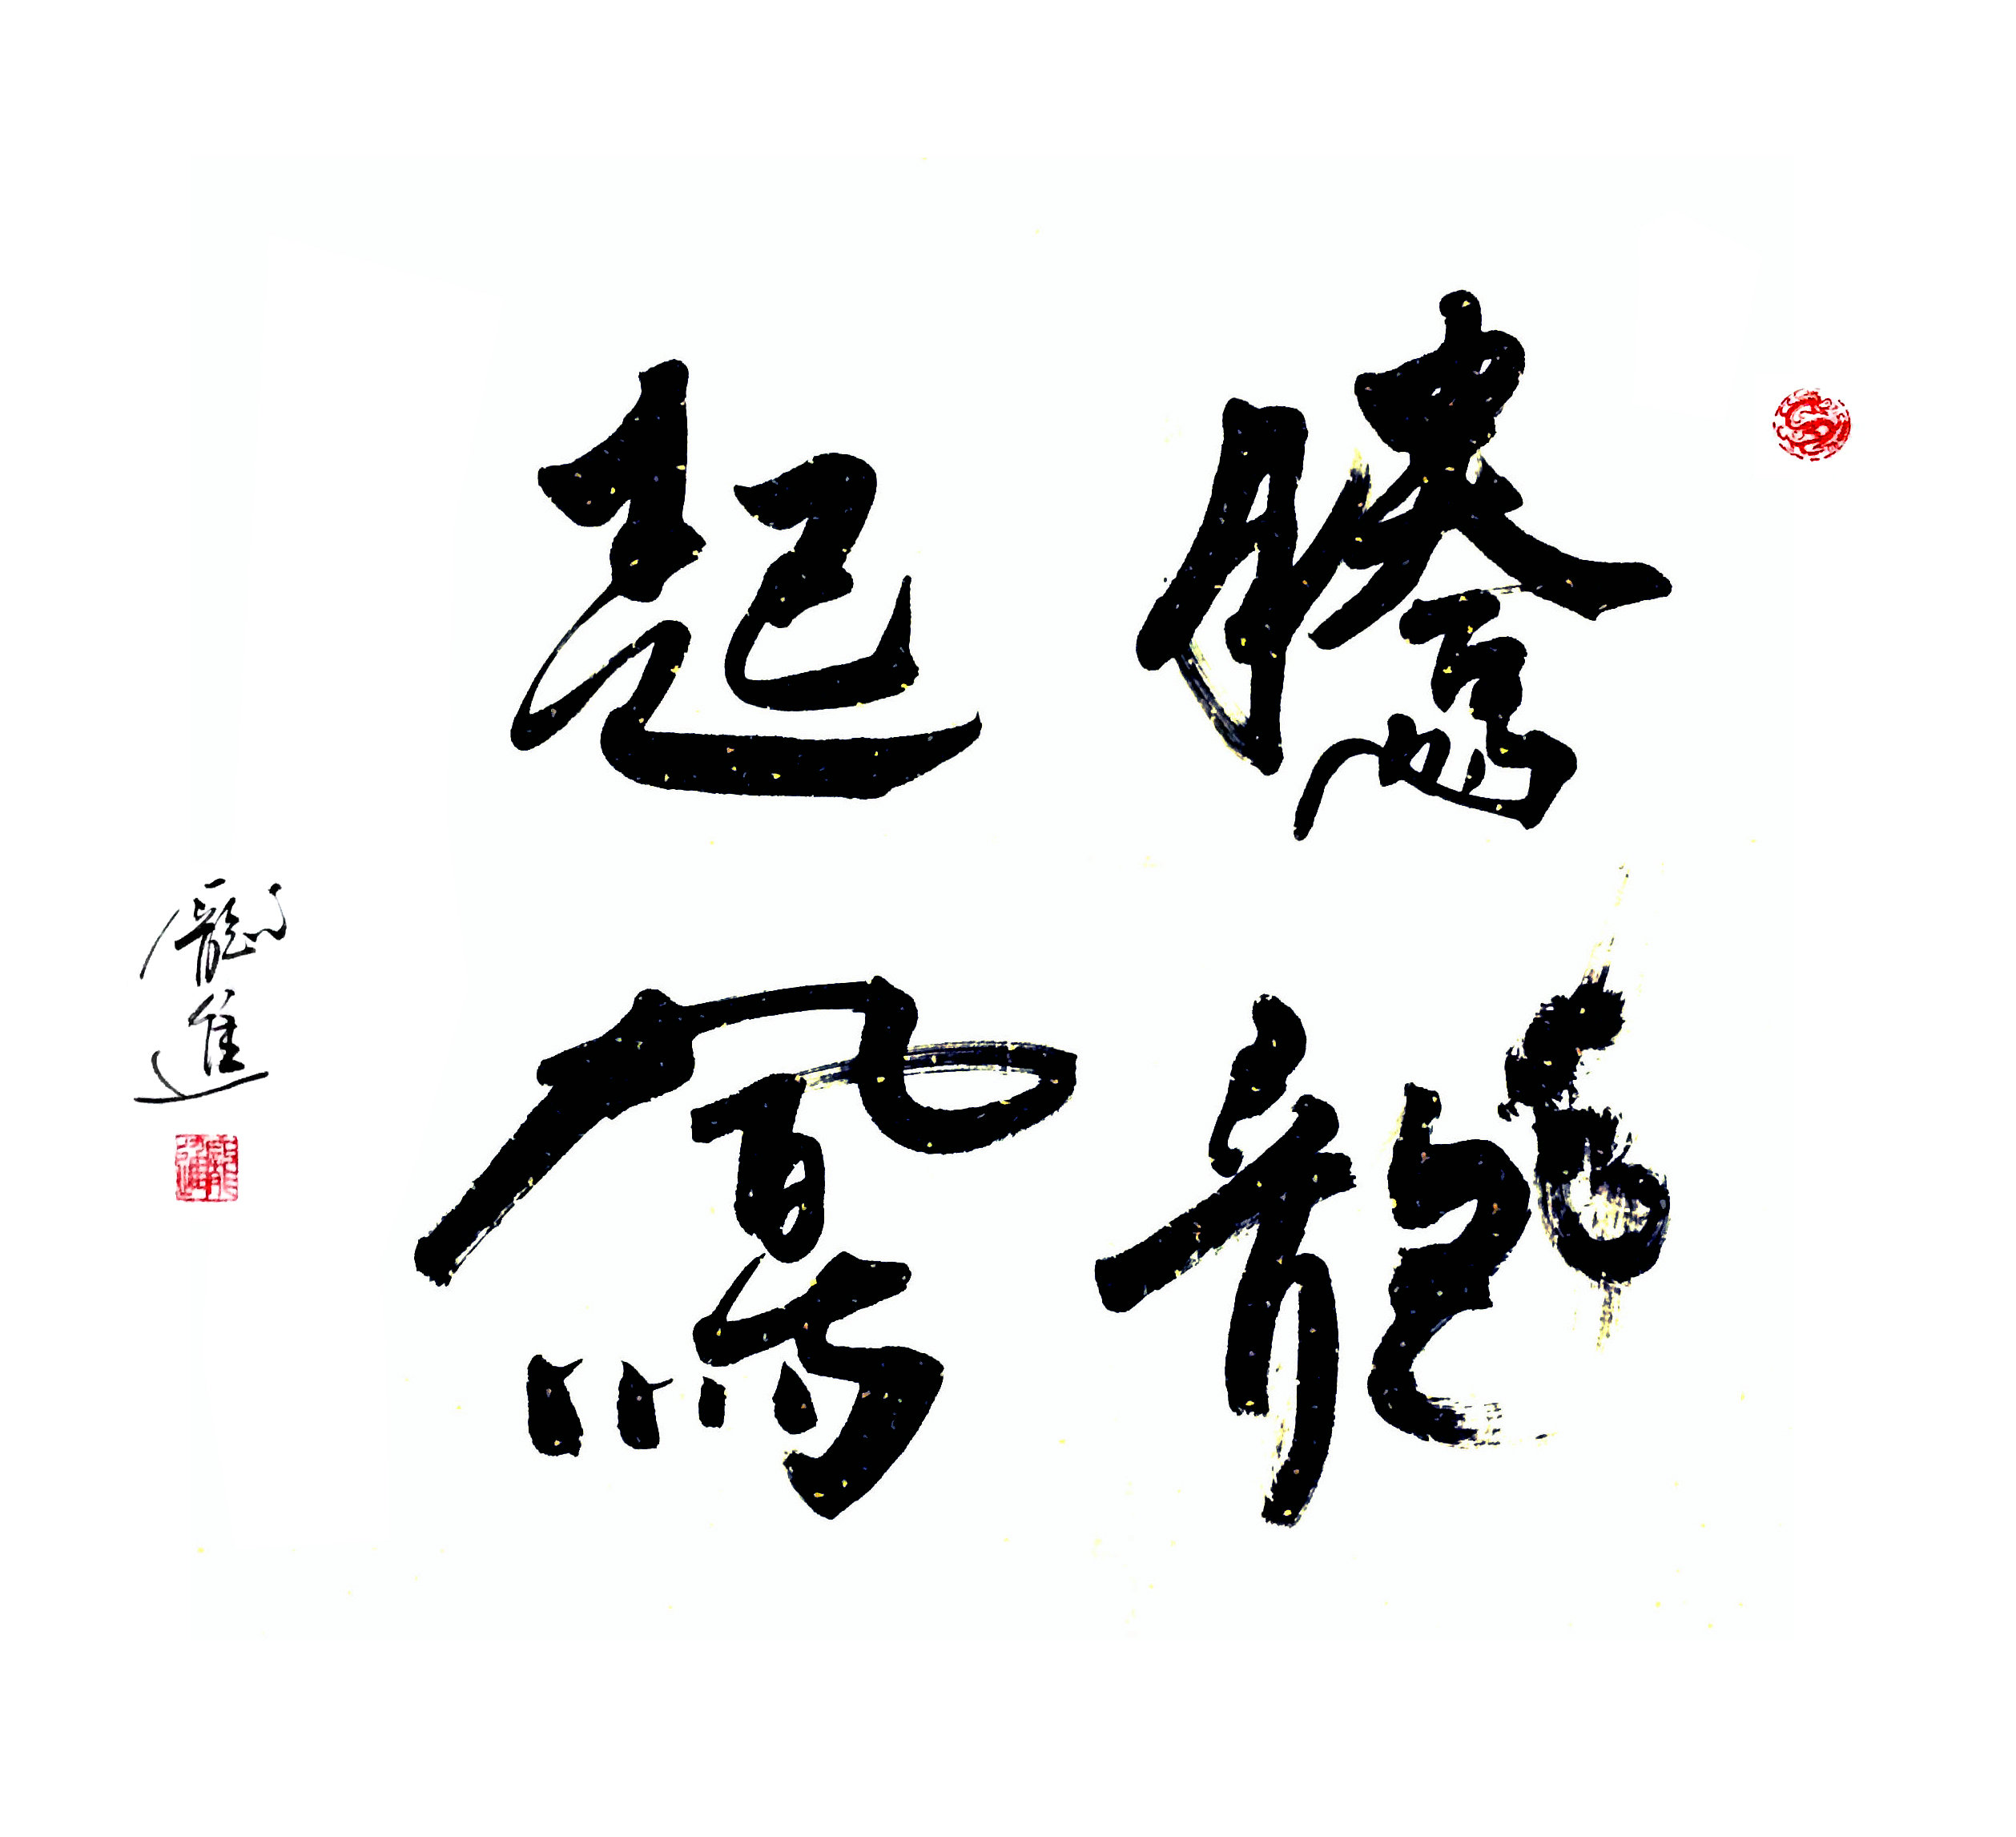 騰龍
起鳳
龐進